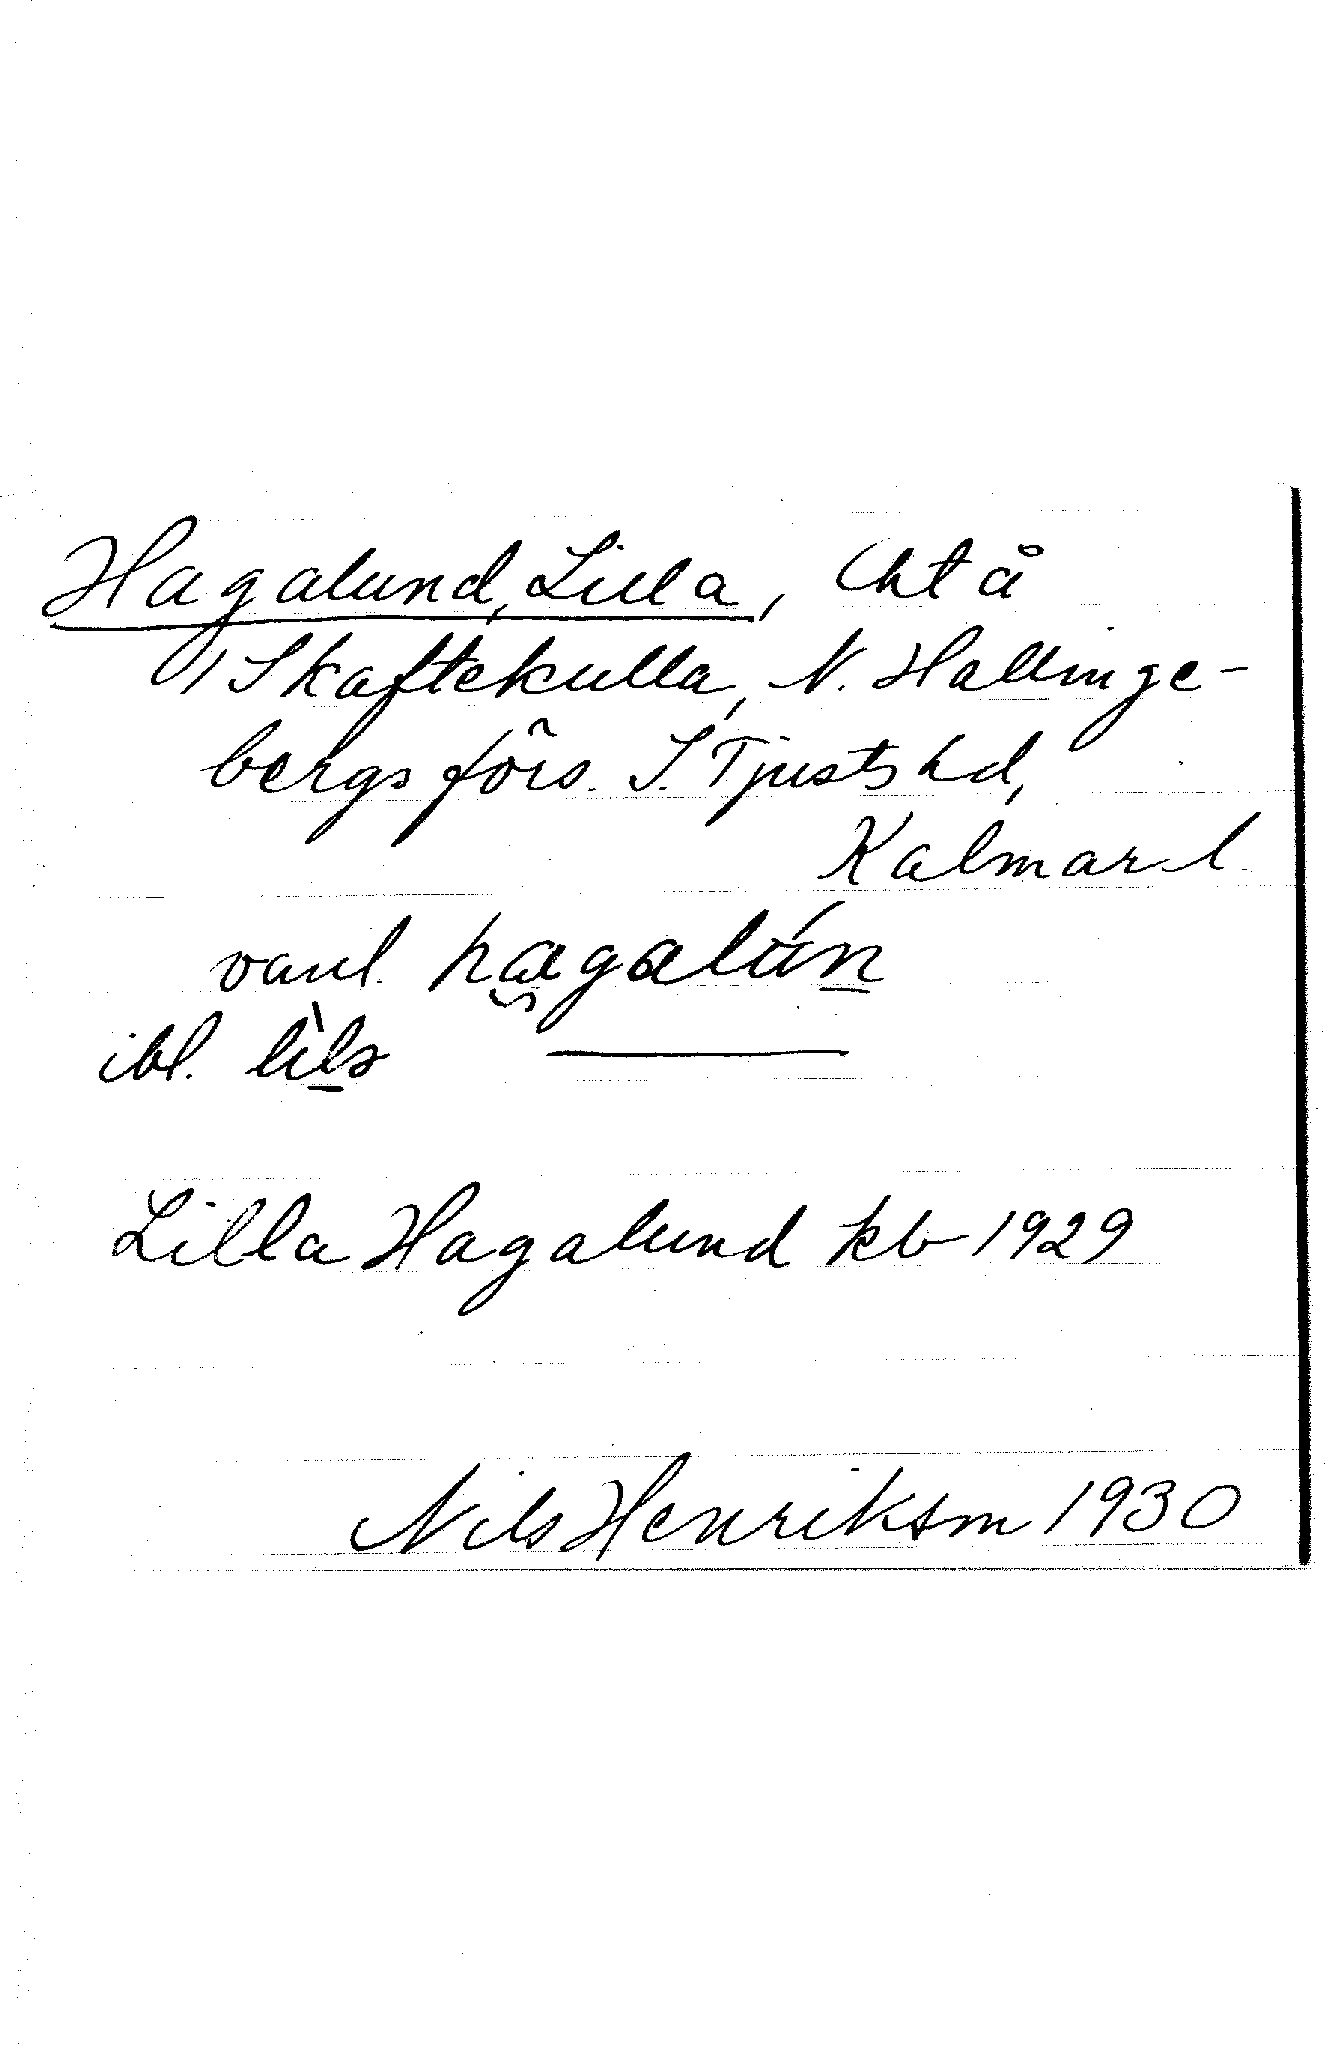 Hagalund, Lilla, lht å
Skaftekulla, N. Hallinge-
bergs förs. S. Tjusts hd,
Kalmar l.
vanl. hagalún
ibl. lìls ———
Lilla Hagalund kb 1929
Nils Henrikson 1930